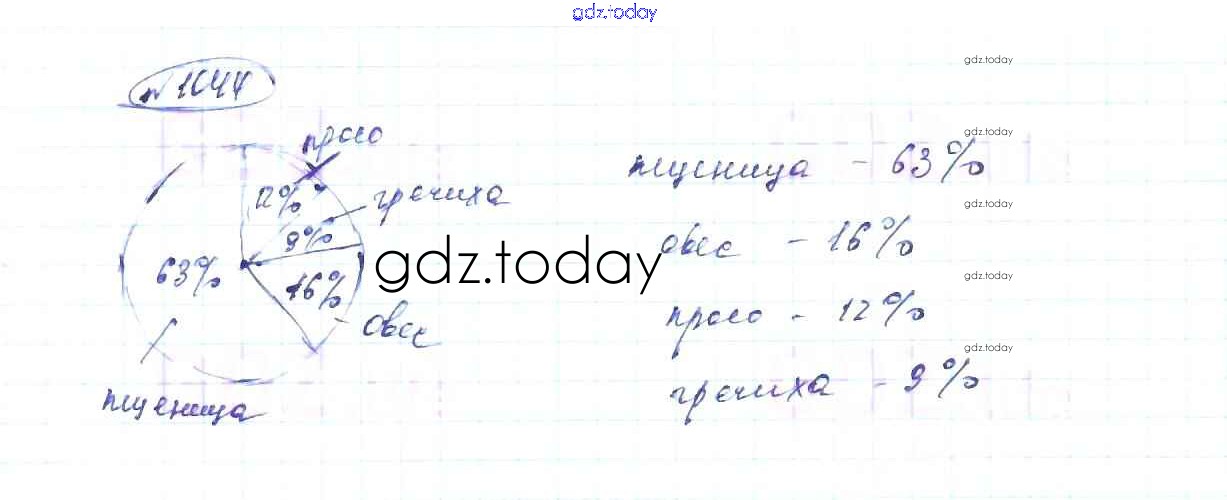 gdz.today
gdz.today
№ 1044
gdz.today
просо
пшеница - 63%
12%
гречиха
gdz.today
9%
овес - 16%
gdz.today
63%
16%
gdz.today
просо - 12%
овес
gdz.today
гречиха - 9%
пшеница